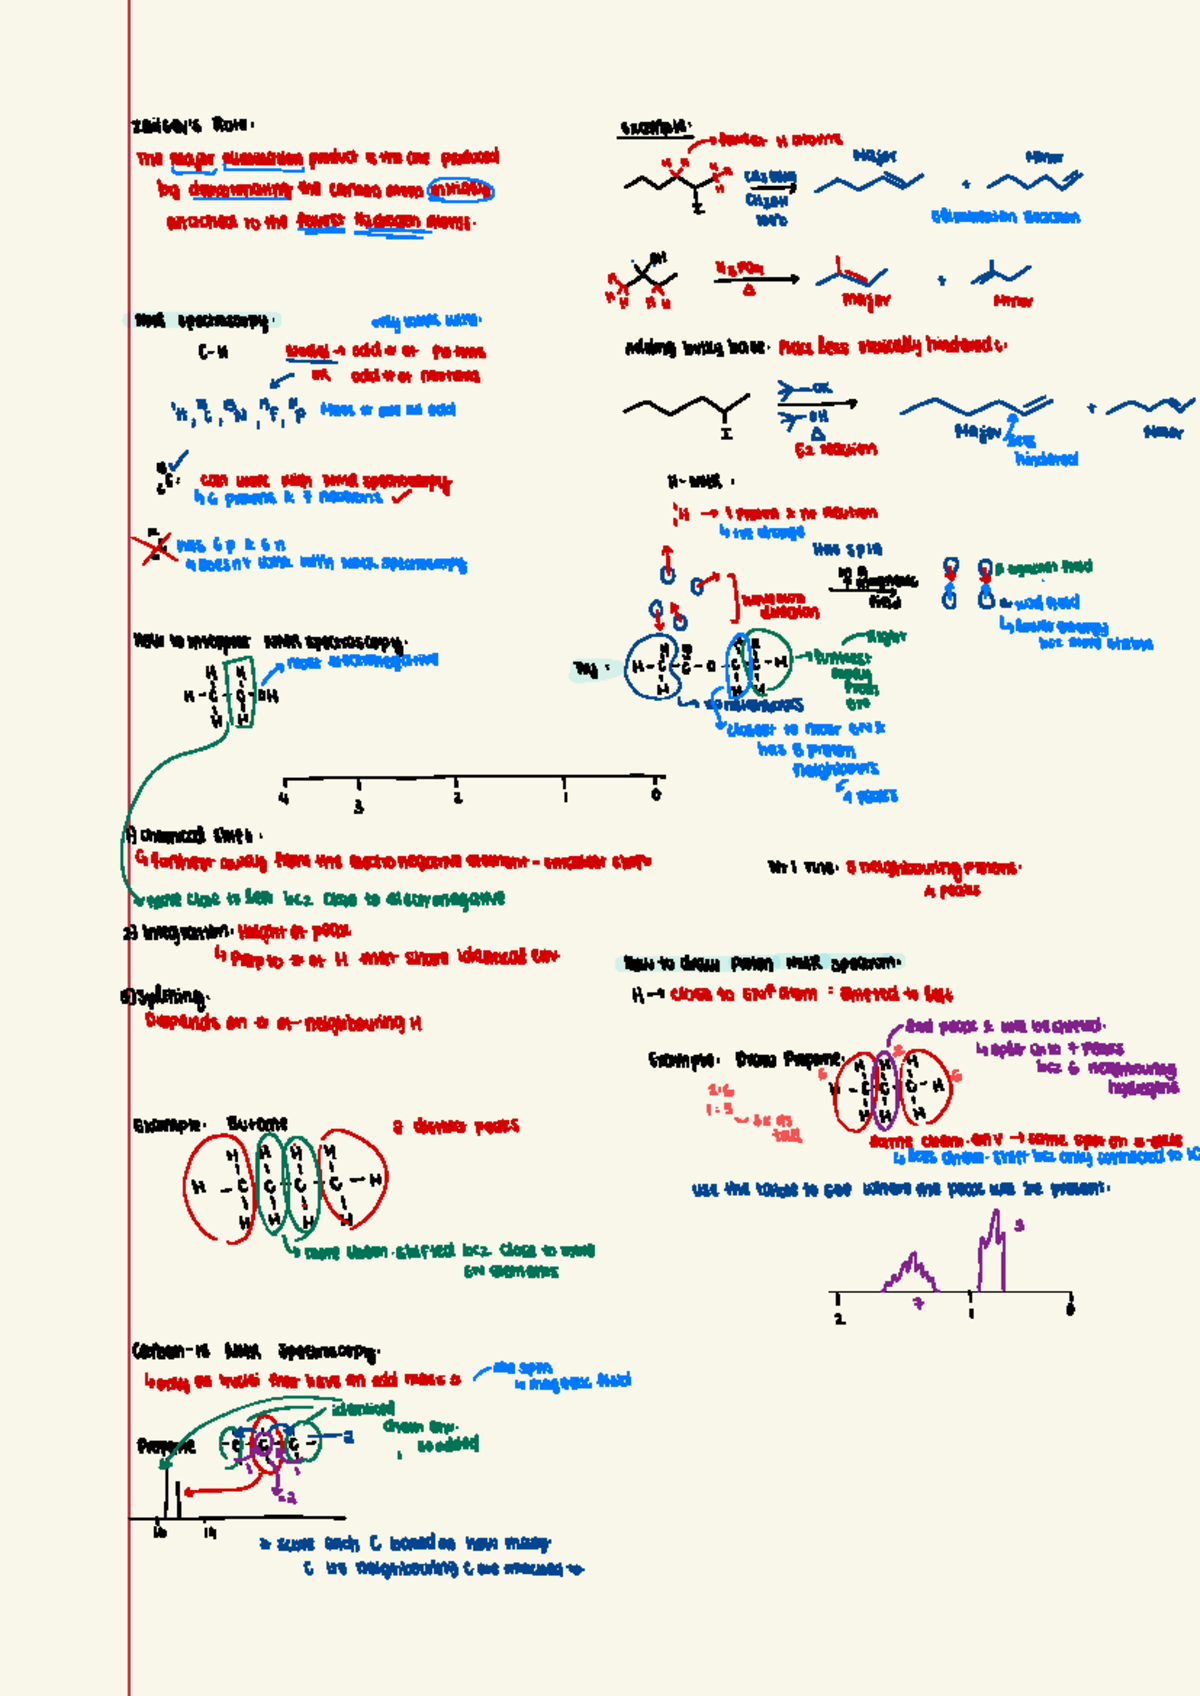 Zaitsev's Rule.
The major elimination product is the one produced
by deprotonating the carbon atom initially
attached to the fewest hydrogen atoms.
NMR spectroscopy.
only works with.
C-H
odd # of protons
or odd # of neutrons
can work with NMR spectroscopy
↳ 6 protons & 7 neutrons ✓
has 6 p & 6 n
↳ doesn't work with NMR spectroscopy
How to interpret NMR spectroscopy.
most electronegative
H - C - C - OH
4 3 2 1 0
1) Chemical Shift.
↳ further away from the electronegative element - smaller shift
more close to left bcz close to electronegative
2) Integration. Height of peak
↳ Prop to # of H that share identical env
3) Splitting.
Depends on # of neighbouring H
Example. Butane
2 distinct peaks
H - C - C - C - C - H
↳ more down-shifted bcz close to more
EN elements
Carbon-13 NMR Spectroscopy.
↳ only on nuclei that have an odd mass #
↳ magnetic field
identical
chem env.
Propane
C - C - C
2
16 14
* score each C based on how many
C its neighbouring C are attached to
Example.
→ fewer H atoms
Major
Minor
+
Elimination Reaction
I
OH
H₃PO₄
Δ
Major
+
Minor
Adding bulky base. Picks less sterically hindered C.
I
OK
OH
Δ
E2 reaction
Major
less
hindered
+
Minor
H-NMR.
¹H → 1 proton & no neutron
↳ +ve charge
Has spin
in a
magnetic
field
random
direction
β against field
α w/ field
↳ lower energy
bcz more stable
Right
→ furthest
away
from
EN
↳ closest to most EN &
has 3 proton
neighbours
4 peaks
N+1 rule. 3 neighbouring protons.
4 peaks
How to draw proton NMR Spectrum.
H → close to EN atom = shifted to left
2nd peak & will be shifted.
↳ split into 7 peaks
bcz 6 neighbouring
hydrogens
Example. Draw Propane.
H - C - C - C - H
2:6
1:3
3x as
tall
same chem. env → same spot on x-axis
↳ less chem. shift bcz only connected to 1C
Use the table to see where the peak will be present.
3
7
2 1 0